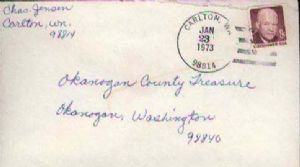 Chas. Jensen
Carlton, Wn.
98814
CARLTON, W
JAN
23
1973
98814
Okanogan County Treasure
Okanogan, Washington
98840